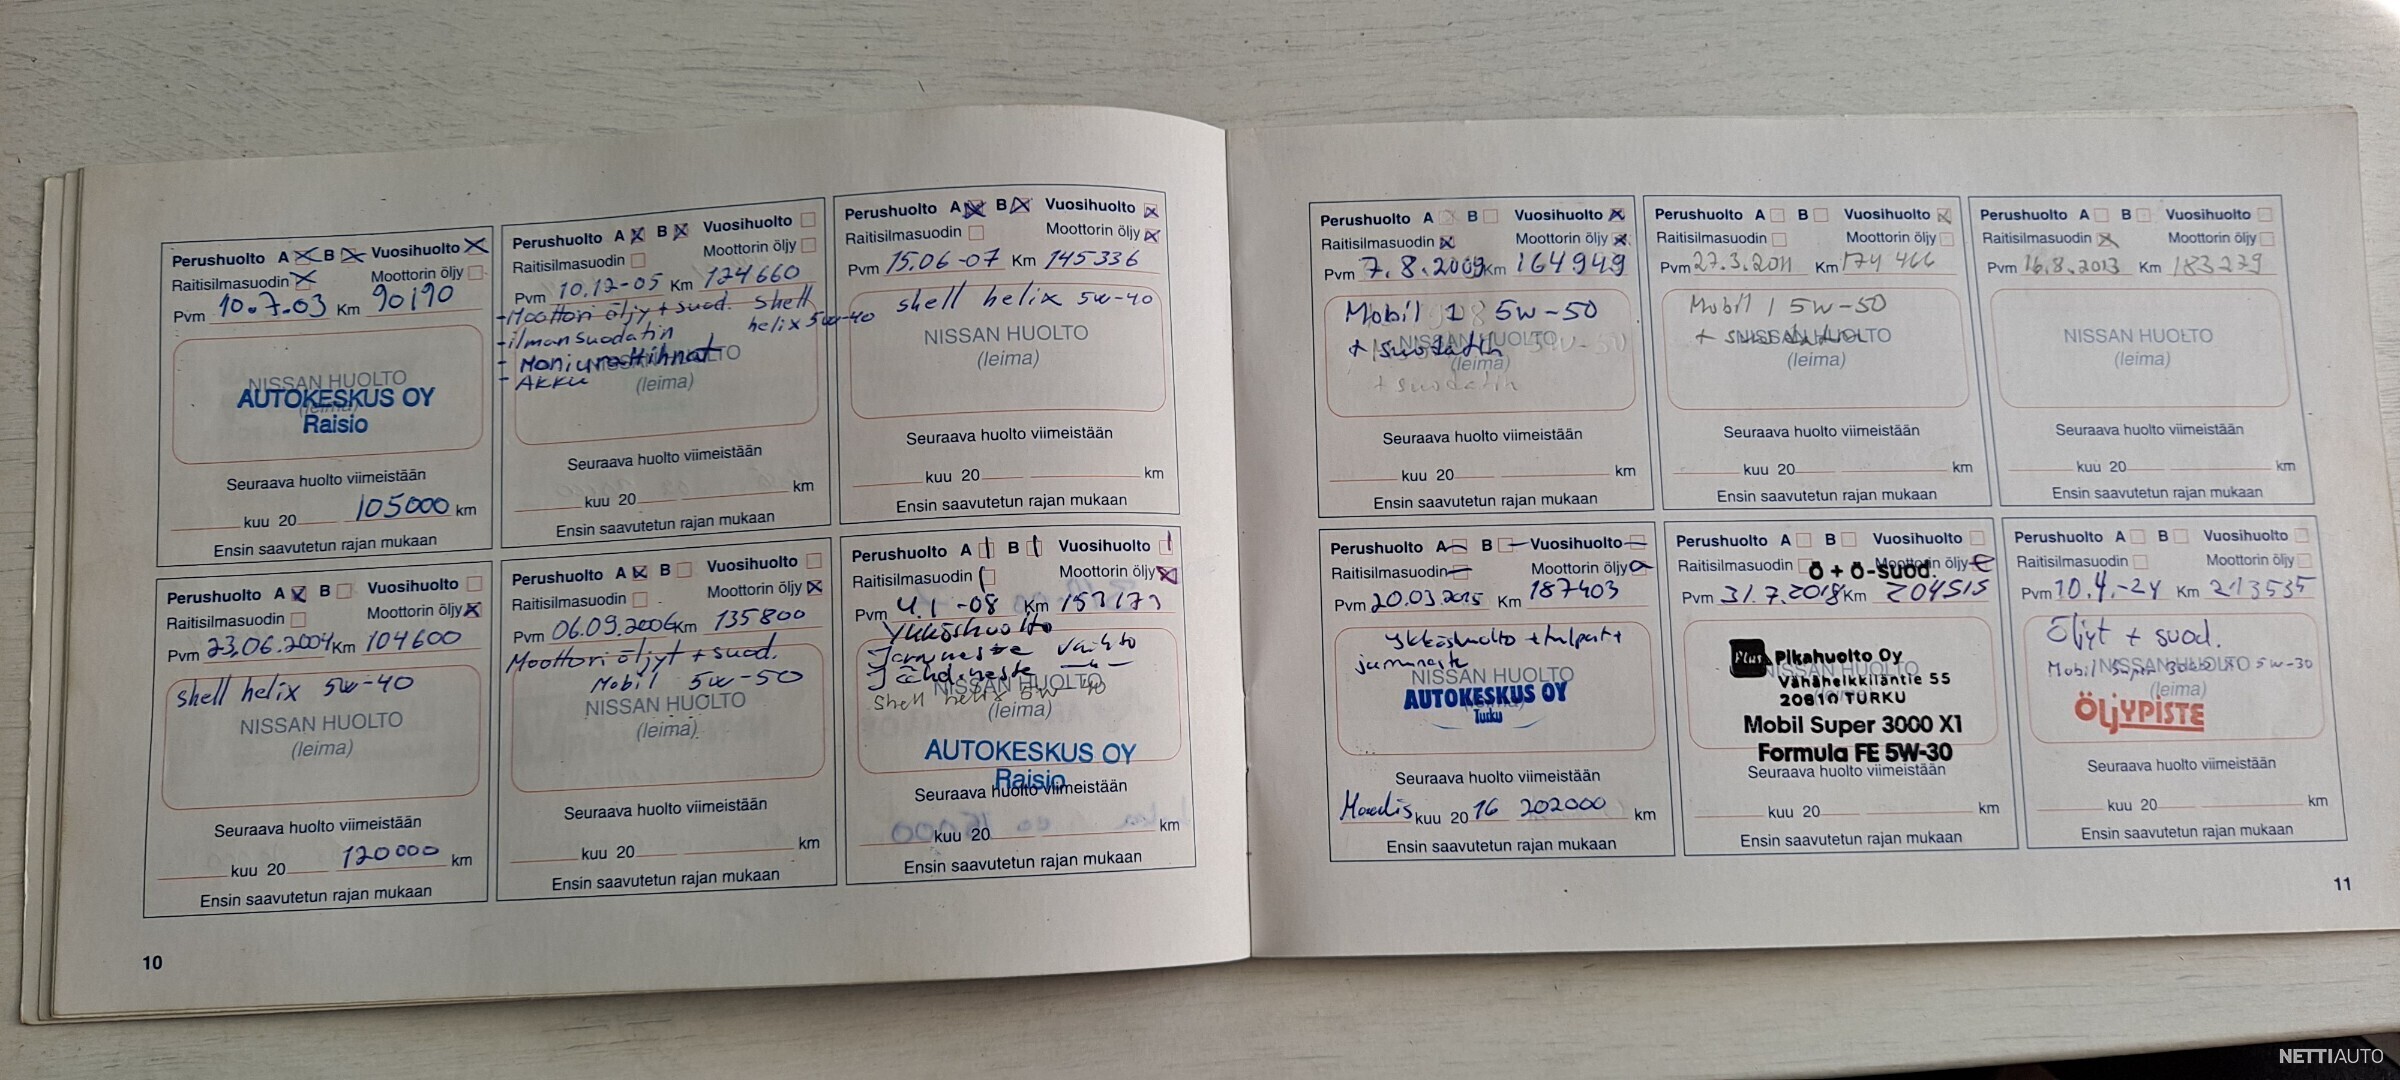 Perushuolto A B Vuosihuolto
Raitisilmasuodin Moottorin öljy
Pvm 10.7.03 Km 90190
NISSAN HUOLTO
(leima)
AUTOKESKUS OY
Raisio
Seuraava huolto viimeistään
kuu 20 105000 km
Ensin saavutetun rajan mukaan
Perushuolto A B Vuosihuolto
Raitisilmasuodin Moottorin öljy
Pvm 10.12-05 Km 124660
-Moottori öljy + suod. Shell
helix 5w-40
-ilmansuodatin
- Moniurahihnat
- AKKU
NISSAN HUOLTO
(leima)
Seuraava huolto viimeistään
kuu 20 km
Ensin saavutetun rajan mukaan
Perushuolto A B Vuosihuolto
Raitisilmasuodin Moottorin öljy
Pvm 15.06-07 Km 145336
shell helix 5w-40
NISSAN HUOLTO
(leima)
Seuraava huolto viimeistään
kuu 20 km
Ensin saavutetun rajan mukaan
Perushuolto A B Vuosihuolto
Raitisilmasuodin Moottorin öljy
Pvm 23.06.2004 Km 104600
shell helix 5w-40
NISSAN HUOLTO
(leima)
Seuraava huolto viimeistään
kuu 20 120000 km
Ensin saavutetun rajan mukaan
Perushuolto A B Vuosihuolto
Raitisilmasuodin Moottorin öljy
Pvm 06.09.2006 Km 135800
Moottori öljyt + suod.
Mobil 5w-50
NISSAN HUOLTO
(leima)
Seuraava huolto viimeistään
kuu 20 km
Ensin saavutetun rajan mukaan
Perushuolto A B Vuosihuolto
Raitisilmasuodin Moottorin öljy
Pvm 4.1-08 Km 153173
Ykköshuolto
Jarruneste vaihto
Jäähd.neste -"-
shell helix 5w 40
NISSAN HUOLTO
(leima)
AUTOKESKUS OY
Raisio
Seuraava huolto viimeistään
kuu 20 km
Ensin saavutetun rajan mukaan
10
Perushuolto A B Vuosihuolto
Raitisilmasuodin Moottorin öljy
Pvm 7.8.2009 Km 164949
Mobil 1 5w-50
+ suodatin
NISSAN HUOLTO
(leima)
+ suodatin
Seuraava huolto viimeistään
kuu 20 km
Ensin saavutetun rajan mukaan
Perushuolto A B Vuosihuolto
Raitisilmasuodin Moottorin öljy
Pvm 27.3.2011 Km 174 466
Mobil 1 5w-50
+ suodatin
NISSAN HUOLTO
(leima)
Seuraava huolto viimeistään
kuu 20 km
Ensin saavutetun rajan mukaan
Perushuolto A B Vuosihuolto
Raitisilmasuodin Moottorin öljy
Pvm 16.8.2013 Km 183279
NISSAN HUOLTO
(leima)
Seuraava huolto viimeistään
kuu 20 km
Ensin saavutetun rajan mukaan
Perushuolto A B Vuosihuolto
Raitisilmasuodin Moottorin öljy
Pvm 20.03.2015 Km 187403
Ykköshuolto + tulpat +
jarruneste
NISSAN HUOLTO
AUTOKESKUS OY
Turku
Seuraava huolto viimeistään
Maalis kuu 20 16 202000 km
Ensin saavutetun rajan mukaan
Perushuolto A B Vuosihuolto
Raitisilmasuodin Moottorin öljy
Ö + Ö-suod.
Pvm 31.7.2018 Km 204515
Plus Pikahuolto Oy
Vähäheikkiläntie 55
20810 TURKU
Mobil Super 3000 X1
Formula FE 5W-30
Seuraava huolto viimeistään
kuu 20 km
Ensin saavutetun rajan mukaan
Perushuolto A B Vuosihuolto
Raitisilmasuodin Moottorin öljy
Pvm 10.4.-24 Km 213535
Öljyt + suod.
Mobil Super 3000 5w-30
NISSAN HUOLTO
(leima)
ÖLJYPISTE
Seuraava huolto viimeistään
kuu 20 km
Ensin saavutetun rajan mukaan
11
NETTIAUTO